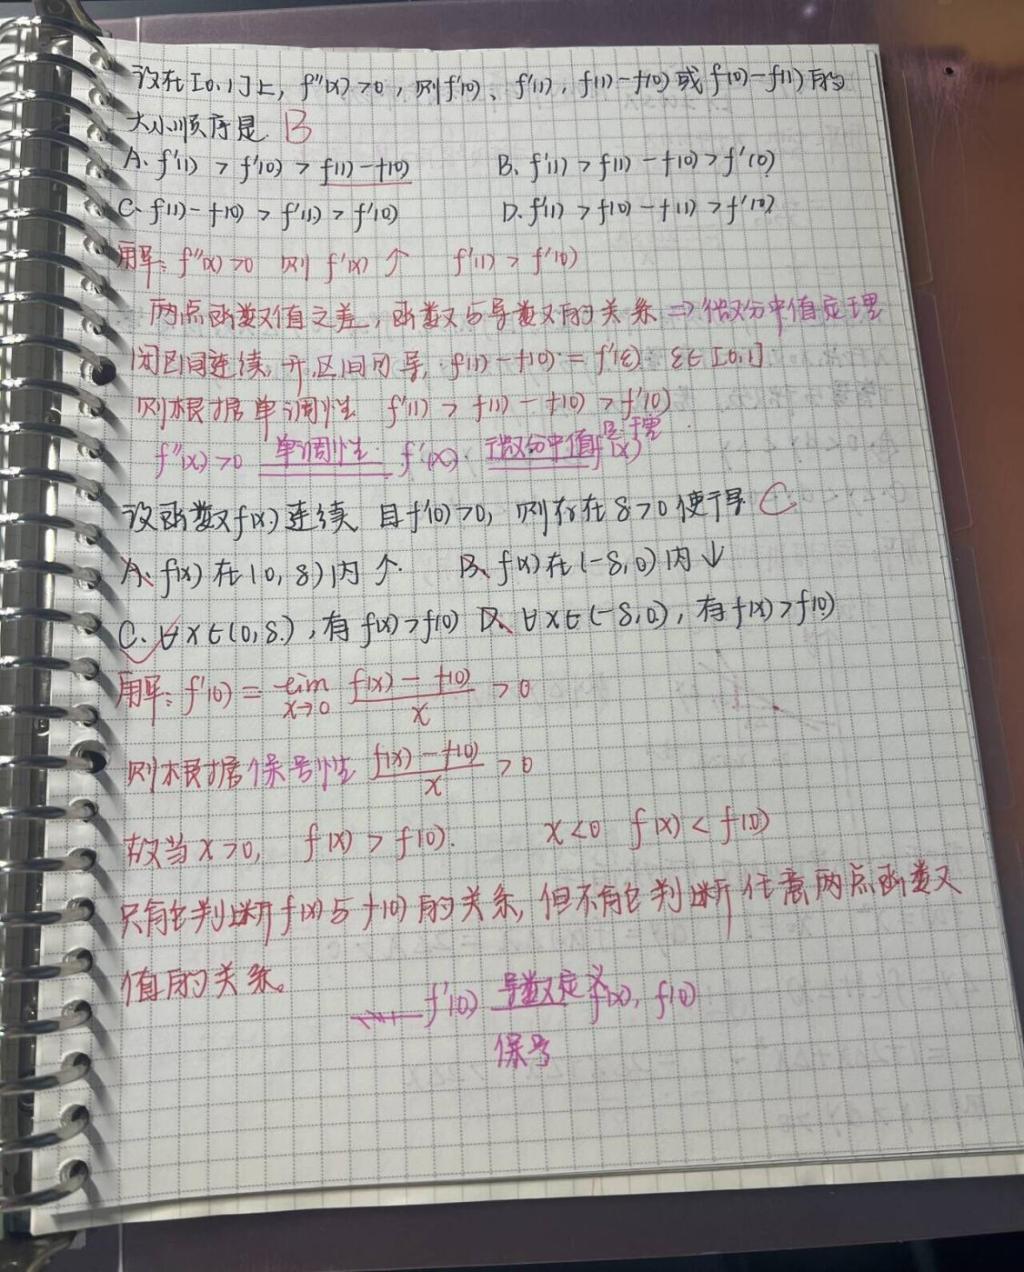 设在[0,1]上, f''(x)>0, 则f'(0)、f'(1), f(1)-f(0)或f(0)-f(1)的
大小顺序是 B
A. f'(1) > f'(0) > f(1)-f(0) B. f'(1) > f(1)-f(0) > f'(0)
C. f(1)-f(0) > f'(1) > f'(0) D. f'(1) > f(0)-f(1) > f'(0)
解: f''(x)>0 则 f'(x)↑ f'(1) > f'(0)
两点函数值之差, 函数与导数的关系 ⇒ 微分中值定理
闭区间连续, 开区间可导, f(1)-f(0)=f'(ξ) ξ∈[0,1]
则根据单调性 f'(1) > f(1)-f(0) > f'(0)
f''(x)>0 单调性 f'(x) 微分中值定理 f(x)
设函数f(x)连续 且f'(0)>0, 则存在δ>0使得 C
A、f(x)在(0,δ)内↑ B、f(x)在(-δ,0)内↓
C. ∀x∈(0,δ), 有f(x)>f(0) D、∀x∈(-δ,0), 有f(x)>f(0)
解: f'(0) = lim x→0 f(x)-f(0) / x > 0
则根据保号性 f(x)-f(0) / x > 0
故当x>0, f(x) > f(0). x<0 f(x) < f(0)
只能判断f(x)与f(0)的关系, 但不能判断任意两点函数
值的关系。
f'(0) 导数定义 f(x), f(0)
保号